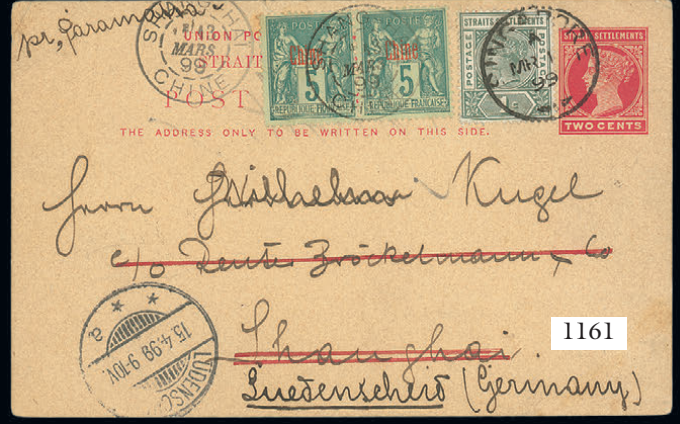 pr. "Paramatta"
SHANG-HAI
MARS
99
CHINE
UNION PO
STRAIT
POST
POSTE
Chine
5
REPUBLIQUE FRANÇAISE
POSTE
Chine
5
REPUBLIQUE FRANÇAISE
SHANG
MARS
99
STRAITS SETTLEMENTS
POSTAGE
POSTAGE
1c
SINGAPORE
MR 1
99
SETTLEMENTS
TWO CENTS
THE ADDRESS ONLY TO BE WRITTEN ON THIS SIDE.
Herrn Kugel
c/o Reuter Bröckelmann & Co
Shanghai
Luedenscheid (Germany)
LÜDENSC
15.4.99 9-10V.
* * a
1161